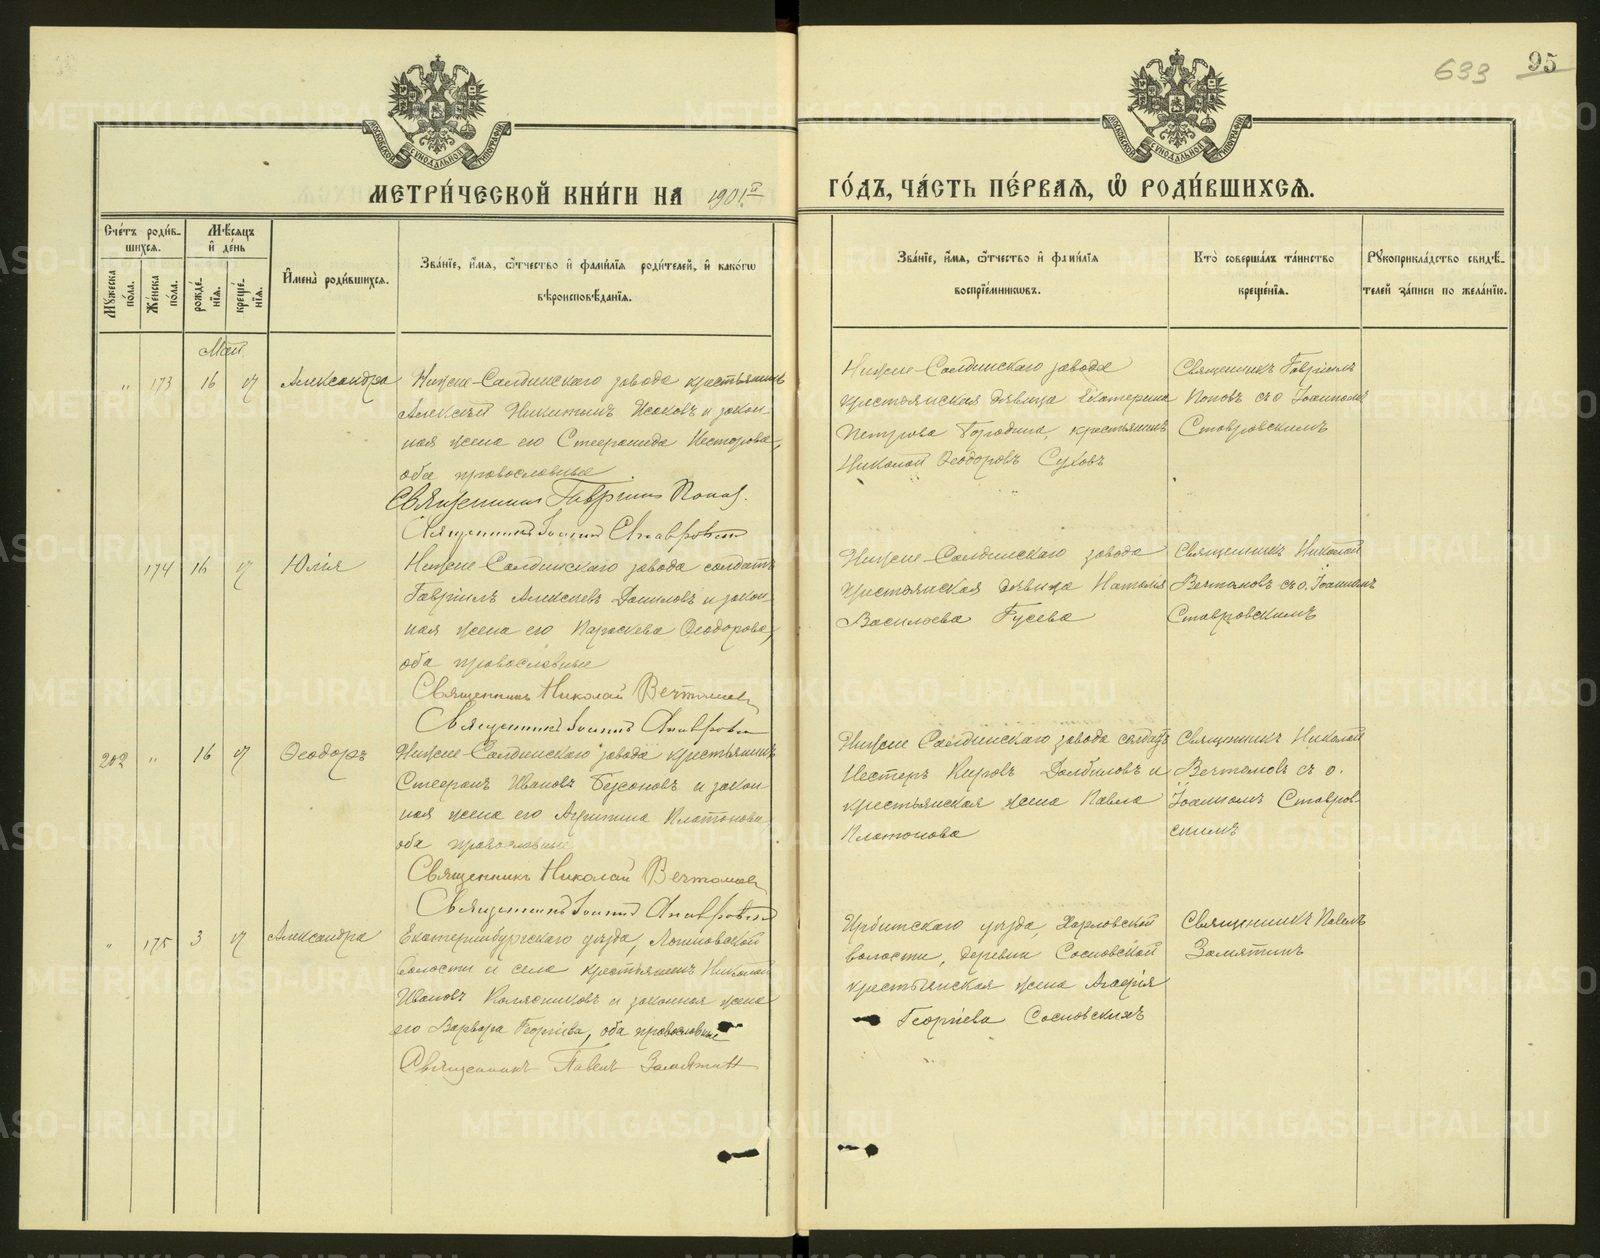 95
633
МОСКОВСКОЙ СѴНОДАЛЬНОЙ ТИПОГРАФІИ
МОСКОВСКОЙ СѴНОДАЛЬНОЙ ТИПОГРАФІИ
МЕТРИ́ЧЕСКОЙ КНИ́ГИ НА 1901й
ГО́ДЪ, ЧА́СТЬ ПЕ́РВАѦ, Ѽ РОДИ́ВШИХСѦ.
Сче́тъ роди́в-
шихсѧ.
Мѣсѧцъ
и҆ де́нь
Мꙋжеска
по́ла.
Же́нска
по́ла.
рожде́-
нїѧ.
креще́-
нїѧ.
И҆мена̀ роди́вшихсѧ.
Зва́нїе, и҆́мѧ, ѻ҆́тчество и҆ фамѝлїѧ роди́телей, и҆ како́гѡ
вѣроисповѣ́данїѧ.
Зва́нїе, и҆́мѧ, ѻ҆́тчество и҆ фамѝлїѧ
воспрїе́мникѡвъ.
Кто̀ соверша́лъ та́инство
креще́нїѧ.
Рꙋкоприкла́дство свидѣ́-
телей за́писи по жела́нїю.
Май
" 173 16 17 Александра
Нижне-Салдинскаго завода крестьянинъ
Алексѣй Никитинъ Исаковъ и закон-
ная жена его Стефанида Несторова,
оба православные
Священникъ Гавріилъ Поповъ.
Священникъ Іоаннъ Ставровскій
Нижне-Салдинскаго завода
крестьянская дѣвица Екатерина
Петрова, крестьянинъ
Николай Ѳеодоровъ Суховъ
Священникъ Гавріилъ
Поповъ съ о. Іоанномъ
Ставровскимъ
174 16 17 Юлія
Нижне-Салдинскаго завода солдатъ
Гавріилъ Алексѣевъ Даниловъ и закон-
ная жена его Параскева Ѳеодорова,
оба православные
Священникъ Николай Вечтомовъ
Священникъ Іоаннъ Ставровскій
Нижне-Салдинскаго завода
крестьянская дѣвица Наталія
Васильева Гусева
Священникъ Николай
Вечтомовъ съ о. Іоанномъ
Ставровскимъ
202 " 16 17 Ѳеодоръ
Нижне-Салдинскаго завода крестьянинъ
Стефанъ Ивановъ и закон-
ная жена его Платонова
оба православные
Священникъ Николай Вечтомовъ
Священникъ Іоаннъ Ставровскій
Нижне Салдинскаго завода солдатъ
Нестеръ Кировъ Долбиловъ и
крестьянская жена Павла
Платонова
Священникъ Николай
Вечтомовъ съ о.
Іоанномъ Ставров-
скимъ
" 175 3 17 Александра
Екатеринбургскаго уѣзда,
волости и села крестьянинъ Николай
Ивановъ Колясниковъ и законная жена
его Варвара Георгіева, оба православные
Священникъ Павелъ Замятинъ
Ирбитскаго уѣзда, Харловской
волости, деревни Сосновской
крестьянская жена Агафія
Георгіева Сосновскихъ
Священникъ Павелъ
Замятинъ